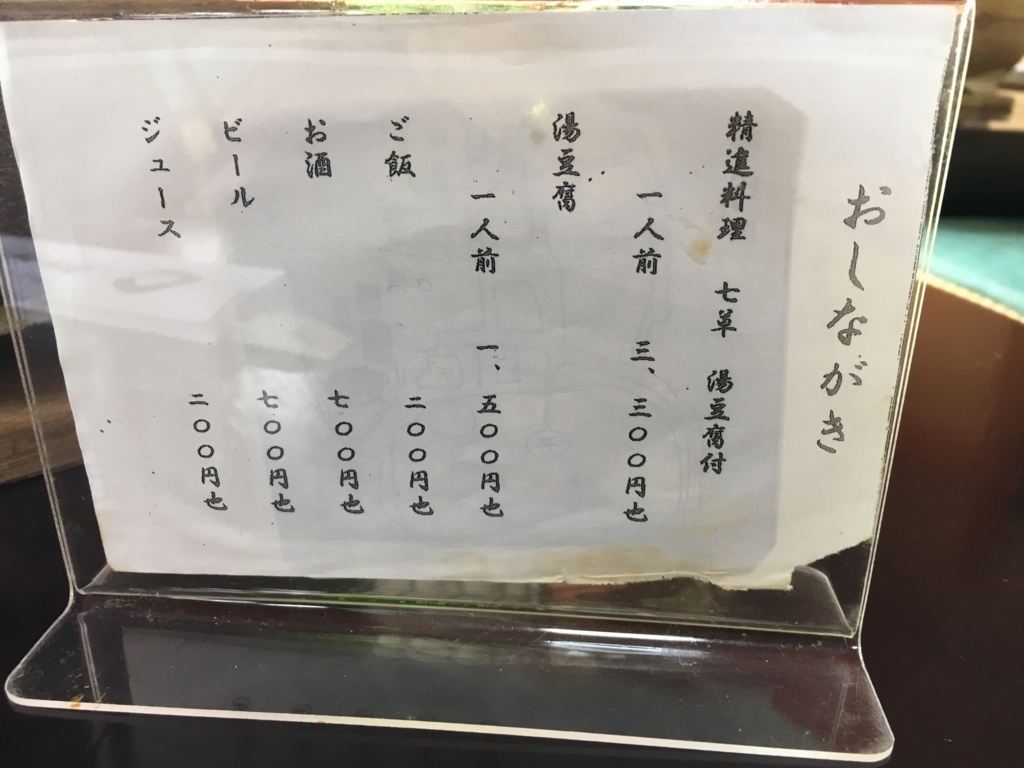 おしながき
精進料理 七草 湯豆腐付
一人前 三、三〇〇円也
湯豆腐
一人前 一、五〇〇円也
ご飯 二〇〇円也
お酒 七〇〇円也
ビール 七〇〇円也
ジュース 二〇〇円也